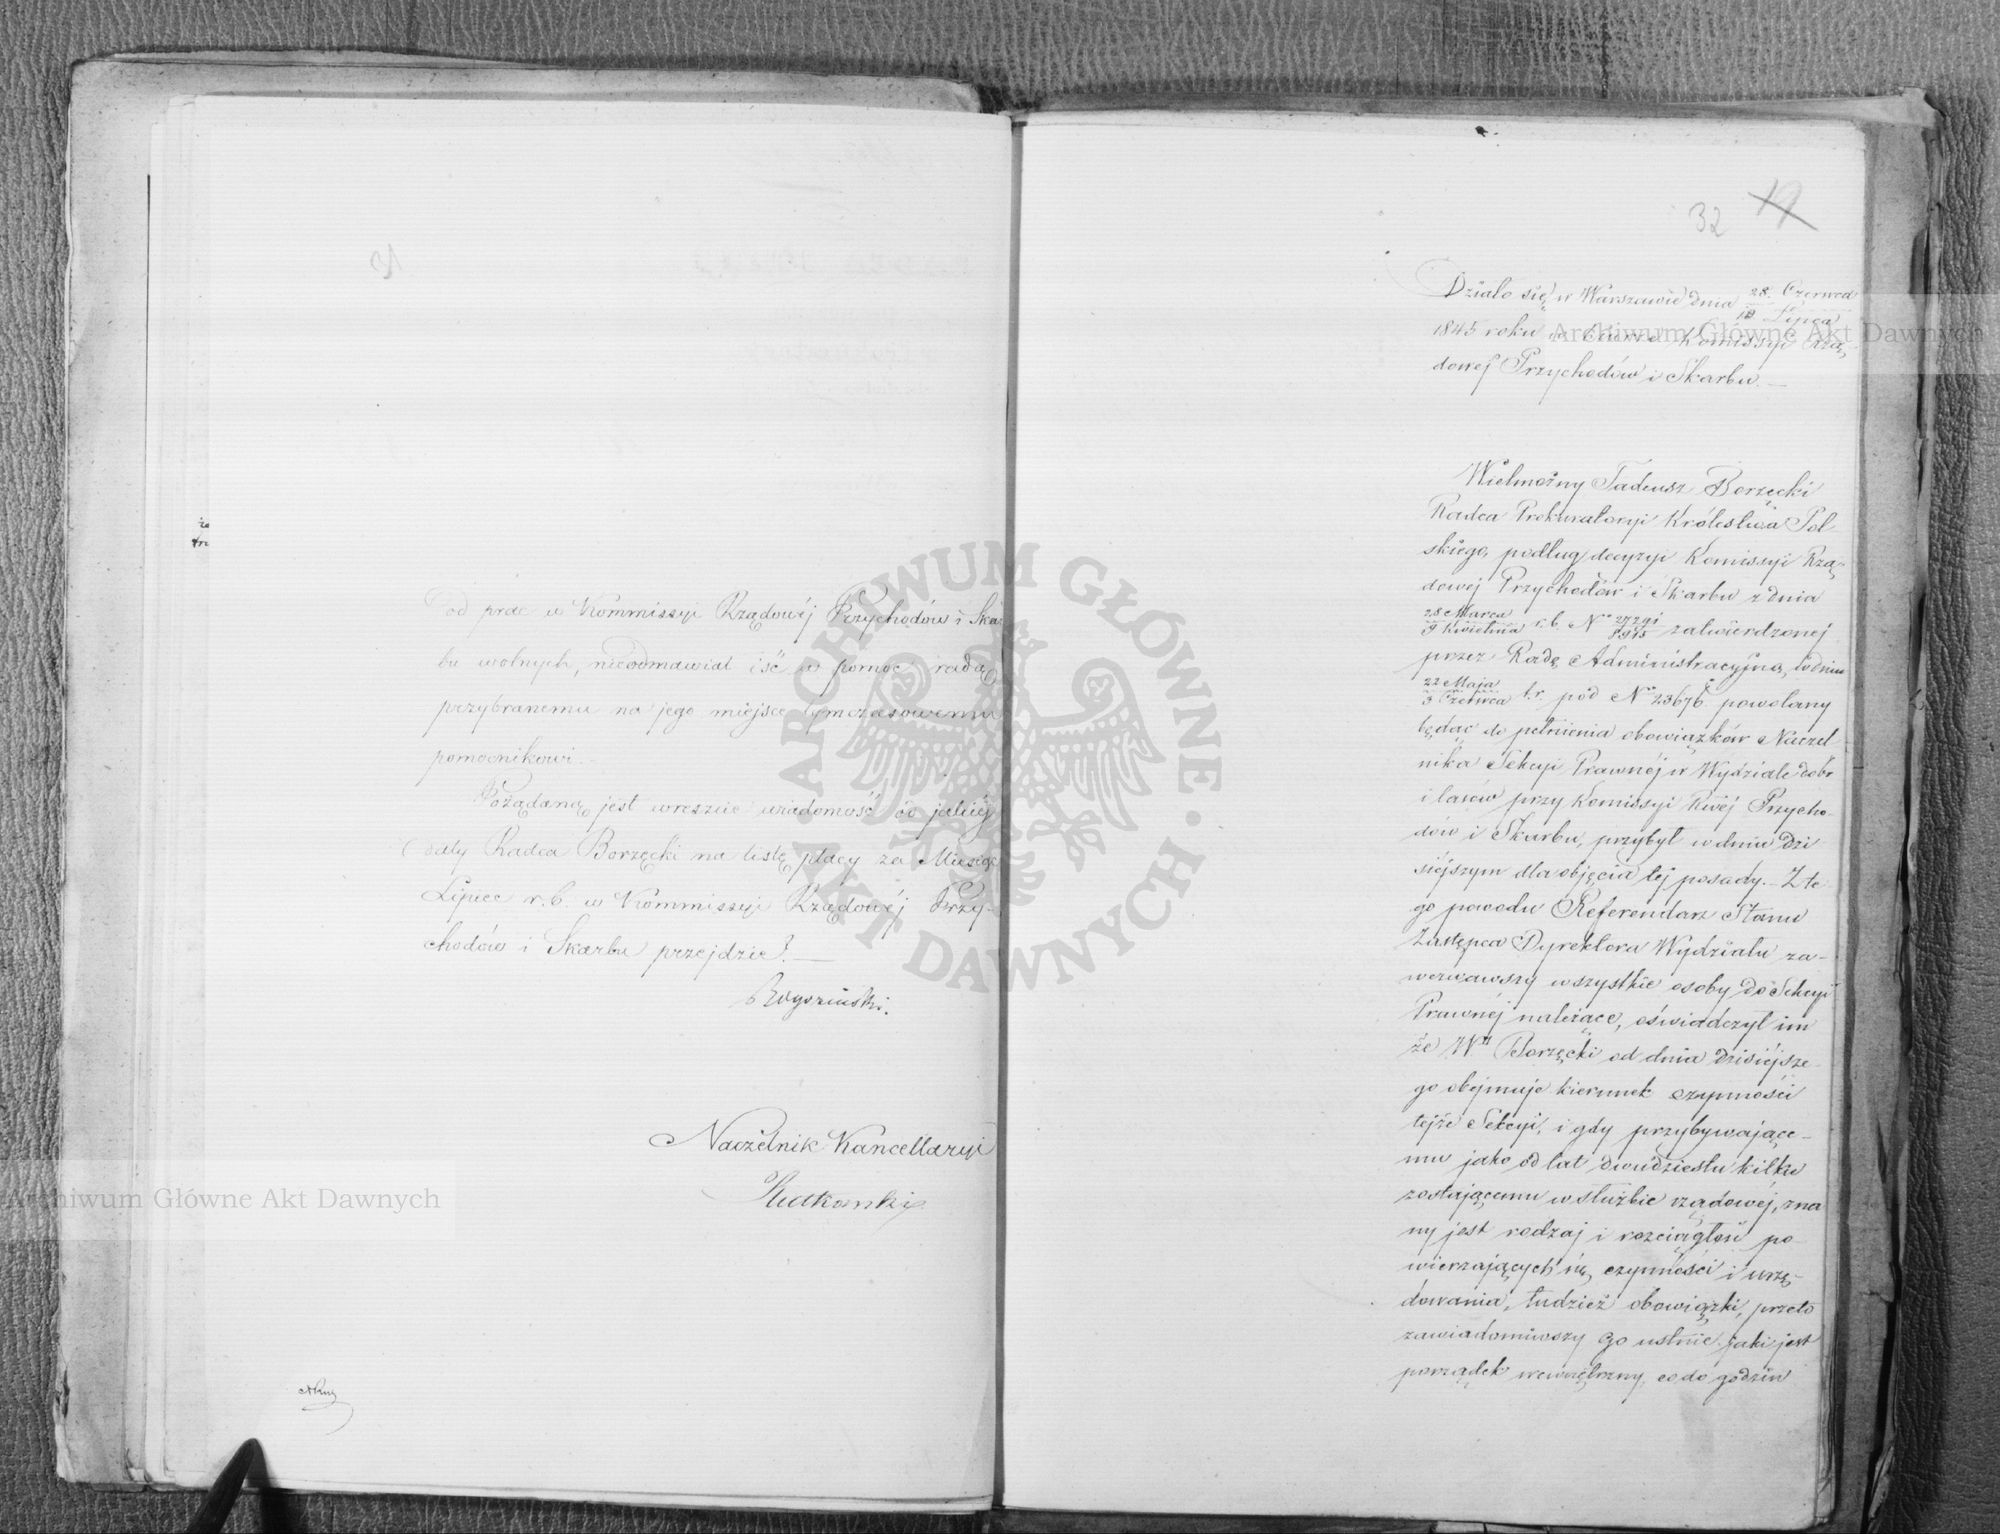 od prac w Kommissyi Rządowéj Przychodów i Skar
bu wolnych, nieodmawiał iść w pomoc radą
przybranemu na jego miejsce tymczasowemu
pomocnikowi.
Pożądaną jest wreszcie wiadomość od jakiéj
daty Radca Borzęcki na listę płacy za Miesiąc
Lipiec r.b. w Kommissyi Rządowéj Przy-
chodów i Skarbu przejdzie? —
Naczelnik Kancellaryi
32 19
Działo się w Warszawie dnia 28. Czerwca
10 Lipca
1845 roku w Biurze Komissyi Rzą-
dowej Przychodów i Skarbu. —
Wielmożny Tadeusz Borzęcki
Radca Prokuratoryi Królestwa Pol-
skiego, podług decyzyi Komissyi Rzą-
dowej Przychodów i Skarbu z dnia
28 Marca
9 Kwietnia r.b. No zatwierdzonej
przez Radę Administracyjną, w dniu
22 Maja
3 Czerwca t.r. pod No 23676 powołany
będąc do pełnienia obowiązków Naczel-
nika Sekcyi Prawnéj w Wydziale dóbr
i lasów przy Komissyi Rwéj Przycho-
dów i Skarbu, przybył w dniu dzi
siéjszym dla objęcia téj posady. — Z te
go powodu Referendarz Stanu
Zastępca Dyrektora Wydziału za-
wezwawszy wszystkie osoby do Sekcyi
Prawnéj należące, oświadczył im
że Wy Borzęcki od dnia dzisiéjsze-
go obejmuje kierunek czynności
tejże Sekcyi, i gdy przybywające-
mu jako od lat dwudziestu kilku
zostającemu w służbie rządowéj, zna
ny jest rodzaj i rozciągłość po-
wierzających się czynności i urzę-
dowania, tudzież obowiązki, przeto
zawiadomiwszy go ustnie jaki jest
porządek wewnętrzny, co do godzin
Archiwum Główne Akt Dawnych
Archiwum Główne Akt Dawnych
ARCHIWUM GŁÓWNE AKT DAWNYCH